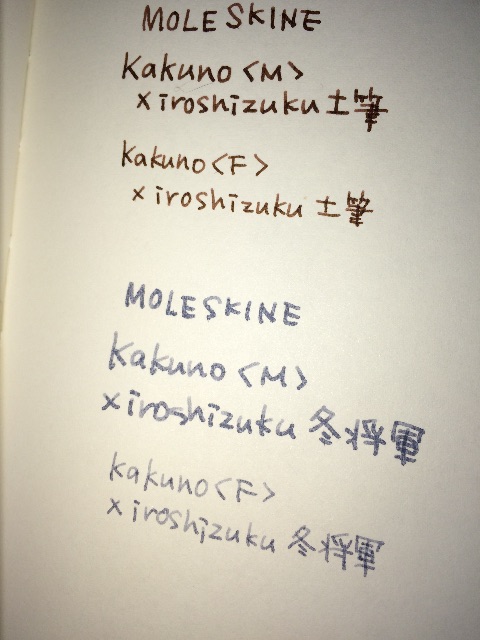 MOLESKINE
Kakuno <M>
x iroshizuku 土筆
Kakuno <F>
x iroshizuku 土筆
MOLESKINE
Kakuno <M>
x iroshizuku 冬将軍
Kakuno <F>
x iroshizuku 冬将軍